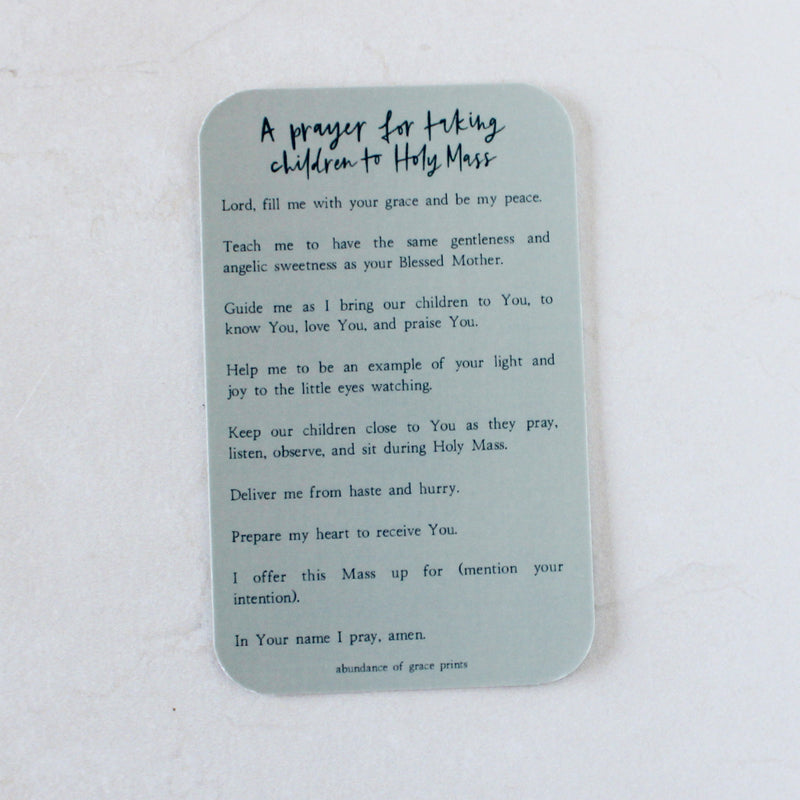 A prayer for taking
children to Holy Mass
Lord, fill me with your grace and be my peace.
Teach me to have the same gentleness and
angelic sweetness as your Blessed Mother.
Guide me as I bring our children to You, to
know You, love You, and praise You.
Help me to be an example of your light and
joy to the little eyes watching.
Keep our children close to You as they pray,
listen, observe, and sit during Holy Mass.
Deliver me from haste and hurry.
Prepare my heart to receive You.
I offer this Mass up for (mention your
intention).
In Your name I pray, amen.
abundance of grace prints